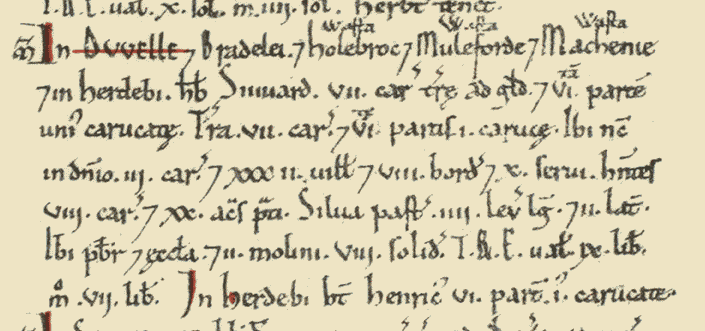 T.R.E. ual. x. sol. m. iiij sol. herbt tenet.
Wasta Wasta Wasta
ᵯ In Duuelle ⁊ Bradelei. ⁊ holebroc ⁊ Muleforde ⁊ Machenie
⁊ in herdebi. hb̄ Siuuard. vii. car̄ træ ad gld̄. ⁊ vi. partē
ta
uni᾿ carucatę. Tr̄a. vii. car᾿. ⁊ vi. partis i. carucę. Ibi nc̄
ta
in dn̄io. iij. car᾿. ⁊ xxx ii. uill̄ ⁊ viii. bord᾿ ⁊ x. serui. hn̄tes
viij. car᾿. ⁊ xx. ac̄s p̄ti. Silua past᾿. iiij. lev᾿ lḡ. ⁊ ii. lat̄.
Ibi pb̄r ⁊ æccl̄a. ⁊ ii. molini. viij. solid᾿. T.R.E. ual᾿. ix. lib̄.
m̊. vij. lib̄. In herdebi ht̄ henric᾿ vi. part̄. i᾿. carucatę.